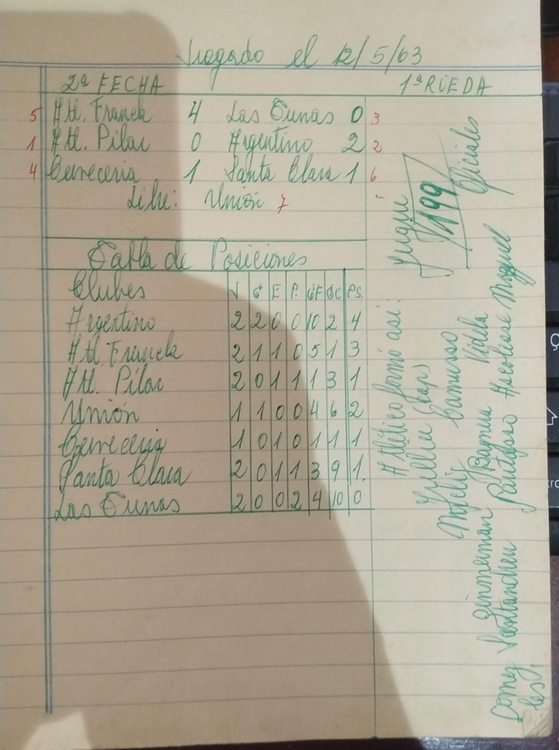 Jugado el 12/5/63
2ª FECHA 1ª RUEDA
5 Atl. Franck 4 Las Tunas 0 3
1 Atl. Pilar 0 Argentino 2 2
4 Cerveceria 1 Santa Clara 1 6
Libre: Unión 7
Tabla de Posiciones
Clubes J G E P. GF GC PS.
Argentino 2 2 0 0 10 2 4
Atl. Franck 2 1 1 0 5 1 3
Atl. Pilar 2 0 1 1 1 3 1
Unión 1 1 0 0 4 6 2
Cerveceria 1 0 1 0 1 1 1
Santa Clara 2 0 1 1 3 9 1.
Las Tunas 2 0 0 2 4 10 0
Atlético formó así: Jugué 199 Oficiales
(Cap)
Camusso
Zimmerman Vidla
Gomez Santandreu Pantaleo Miguel
les).